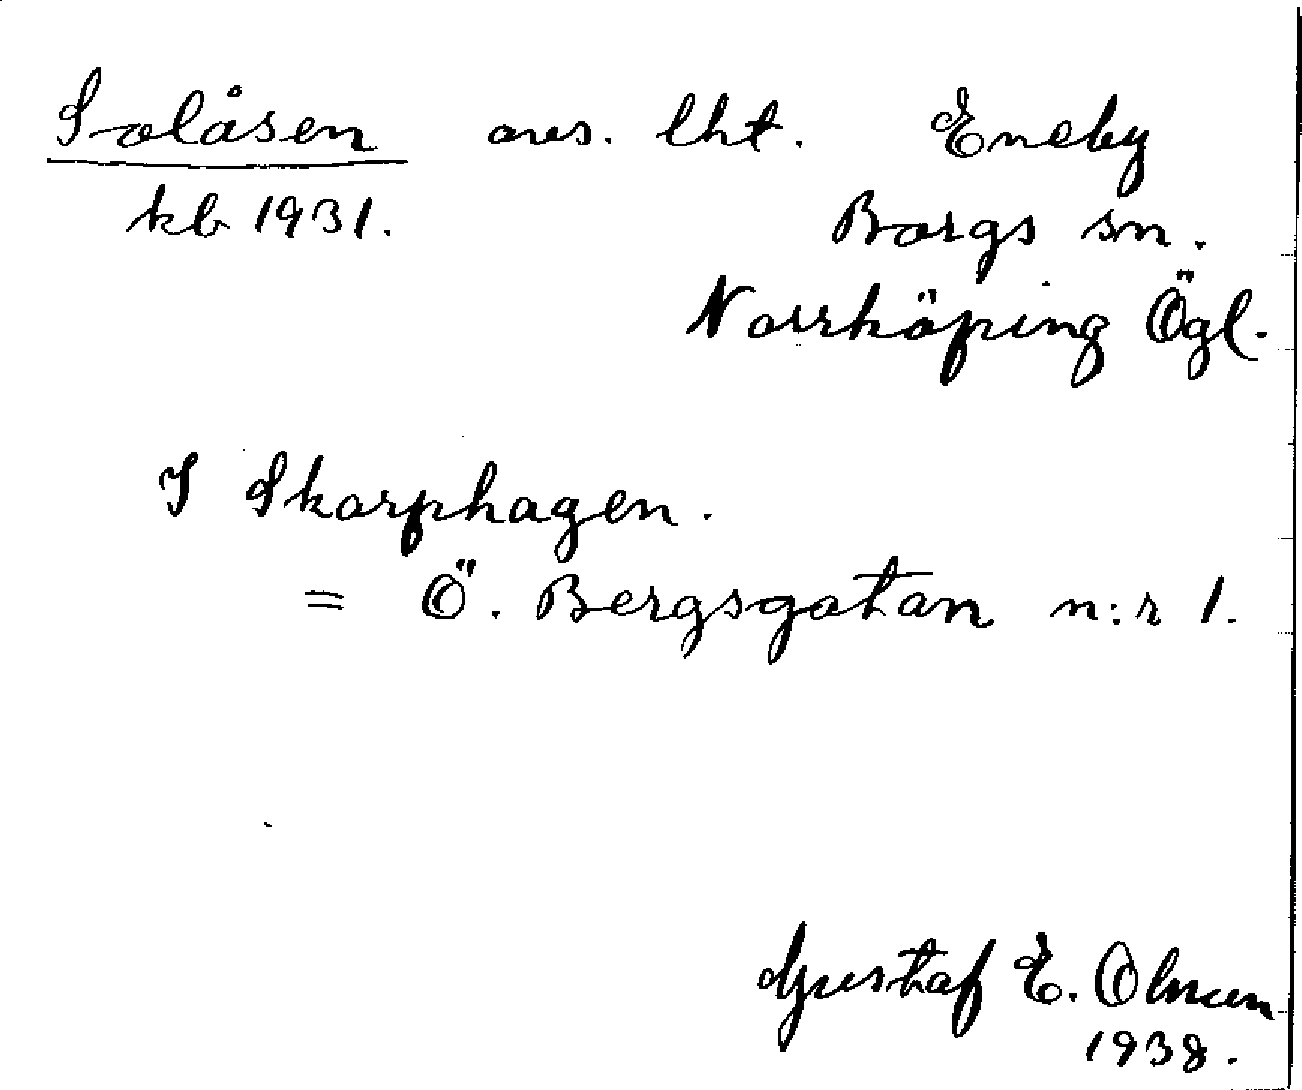 Solåsen avs. lht. Eneby
kb 1931. Borgs sn.
Norrköping Ögl.
I Skarphagen.
= Ö. Bergsgatan n:r 1.
Gustaf E. Olmen
1938.